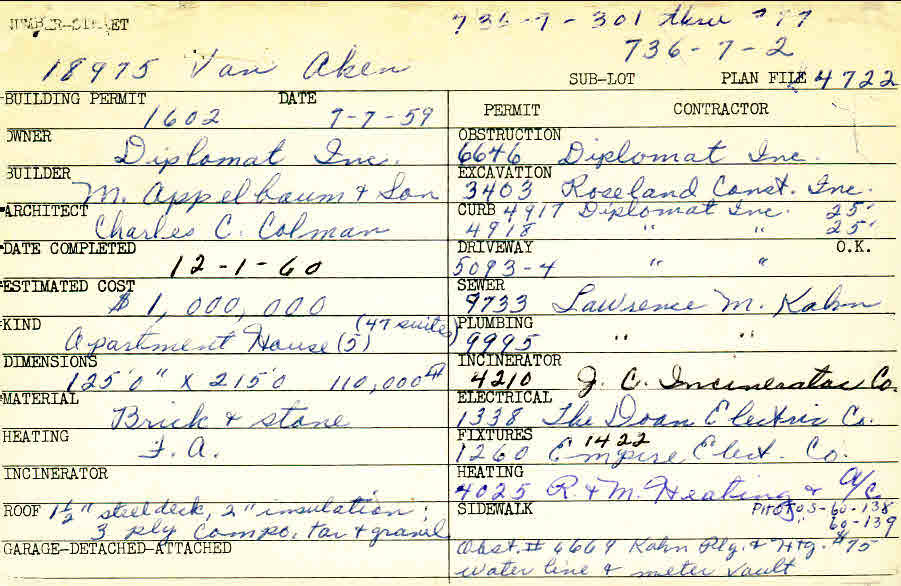 NUMBER-STREET
736-7-301 thru 77
736-7-2
18975 Van Aken
SUB-LOT PLAN FILE 4722
BUILDING PERMIT DATE
1602 7-7-59
OWNER
Diplomat Inc.
BUILDER
M. Appelbaum & Son
ARCHITECT
Charles C. Colman
DATE COMPLETED
12-1-60
ESTIMATED COST
$ 1,000,000
KIND (47 suites)
Apartment House (5)
DIMENSIONS
125'0" X 215'0 110,000 sq ft
MATERIAL
Brick & stone
HEATING
F. A.
INCINERATOR
ROOF 1 1/2" steel deck, 2" insulation;
3 ply compo. tar & gravel
GARAGE-DETACHED-ATTACHED
PERMIT CONTRACTOR
OBSTRUCTION
6646 Diplomat Inc.
EXCAVATION
3403 Roseland Const. Inc.
CURB 4917 Diplomat Inc. 25'
4918 " " 25'
DRIVEWAY O.K.
5093-4 " "
SEWER
9733 Lawrence M. Kahn
PLUMBING
9995 " "
INCINERATOR
4210 J. C. Incinerator Co.
ELECTRICAL
1338 The Doan Electric Co.
FIXTURES 1422
1260 Empire Elect. Co.
HEATING
4025 R. & M. Heating & A/C
SIDEWALK 05-60-138
" 60-139
Obst. # 6669 Kahn Plg. & Htg. $75
water line & meter vault